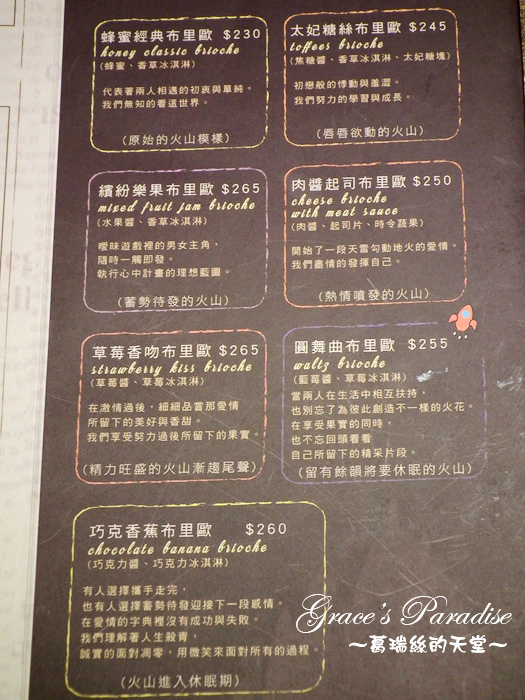 蜂蜜經典布里歐 $230
honey classic brioche
(蜂蜜、香草冰淇淋)
代表著兩人相遇的初衷與單純。
我們無知的看這世界。
(原始的火山模樣)
太妃糖絲布里歐 $245
toffees brioche
(焦糖醬、香草冰淇淋、太妃糖塊)
初戀般的悸動與羞澀。
我們努力的學習與成長。
(唇唇欲動的火山)
繽紛樂果布里歐 $265
mixed fruit jam brioche
(水果醬、香草冰淇淋)
曖昧遊戲裡的男女主角,
隨時一觸即發。
執行心中計畫的理想藍圖。
(蓄勢待發的火山)
肉醬起司布里歐 $250
cheese brioche
with meat sauce
(肉醬、起司片、時令蔬果)
開始了一段天雷勾動地火的愛情。
我們盡情的發揮自己。
(熱情噴發的火山)
草莓香吻布里歐 $265
strawberry kiss brioche
(草莓醬、草莓冰淇淋)
在激情過後,細細品嘗那愛情
所留下的美好與香甜。
我們享受努力過後所留下的果實。
(精力旺盛的火山漸趨尾聲)
圓舞曲布里歐 $255
waltz brioche
(藍莓醬、草莓冰淇淋)
當兩人在生活中相互扶持,
也別忘了為彼此創造不一樣的火花。
在享受果實的同時,
也不忘回頭看看
自己所留下的精采片段。
(留有餘韻將要休眠的火山)
巧克香蕉布里歐 $260
chocolate banana brioche
(巧克力醬、巧克力冰淇淋)
有人選擇攜手走完,
也有人選擇蓄勢待發迎接下一段感情。
在愛情的字典裡沒有成功與失敗。
我們理解著人生殺青,
誠實的面對凋零,用微笑來面對所有的過程。
(火山進入休眠期)
Grace's Paradise
~葛瑞絲的天堂~